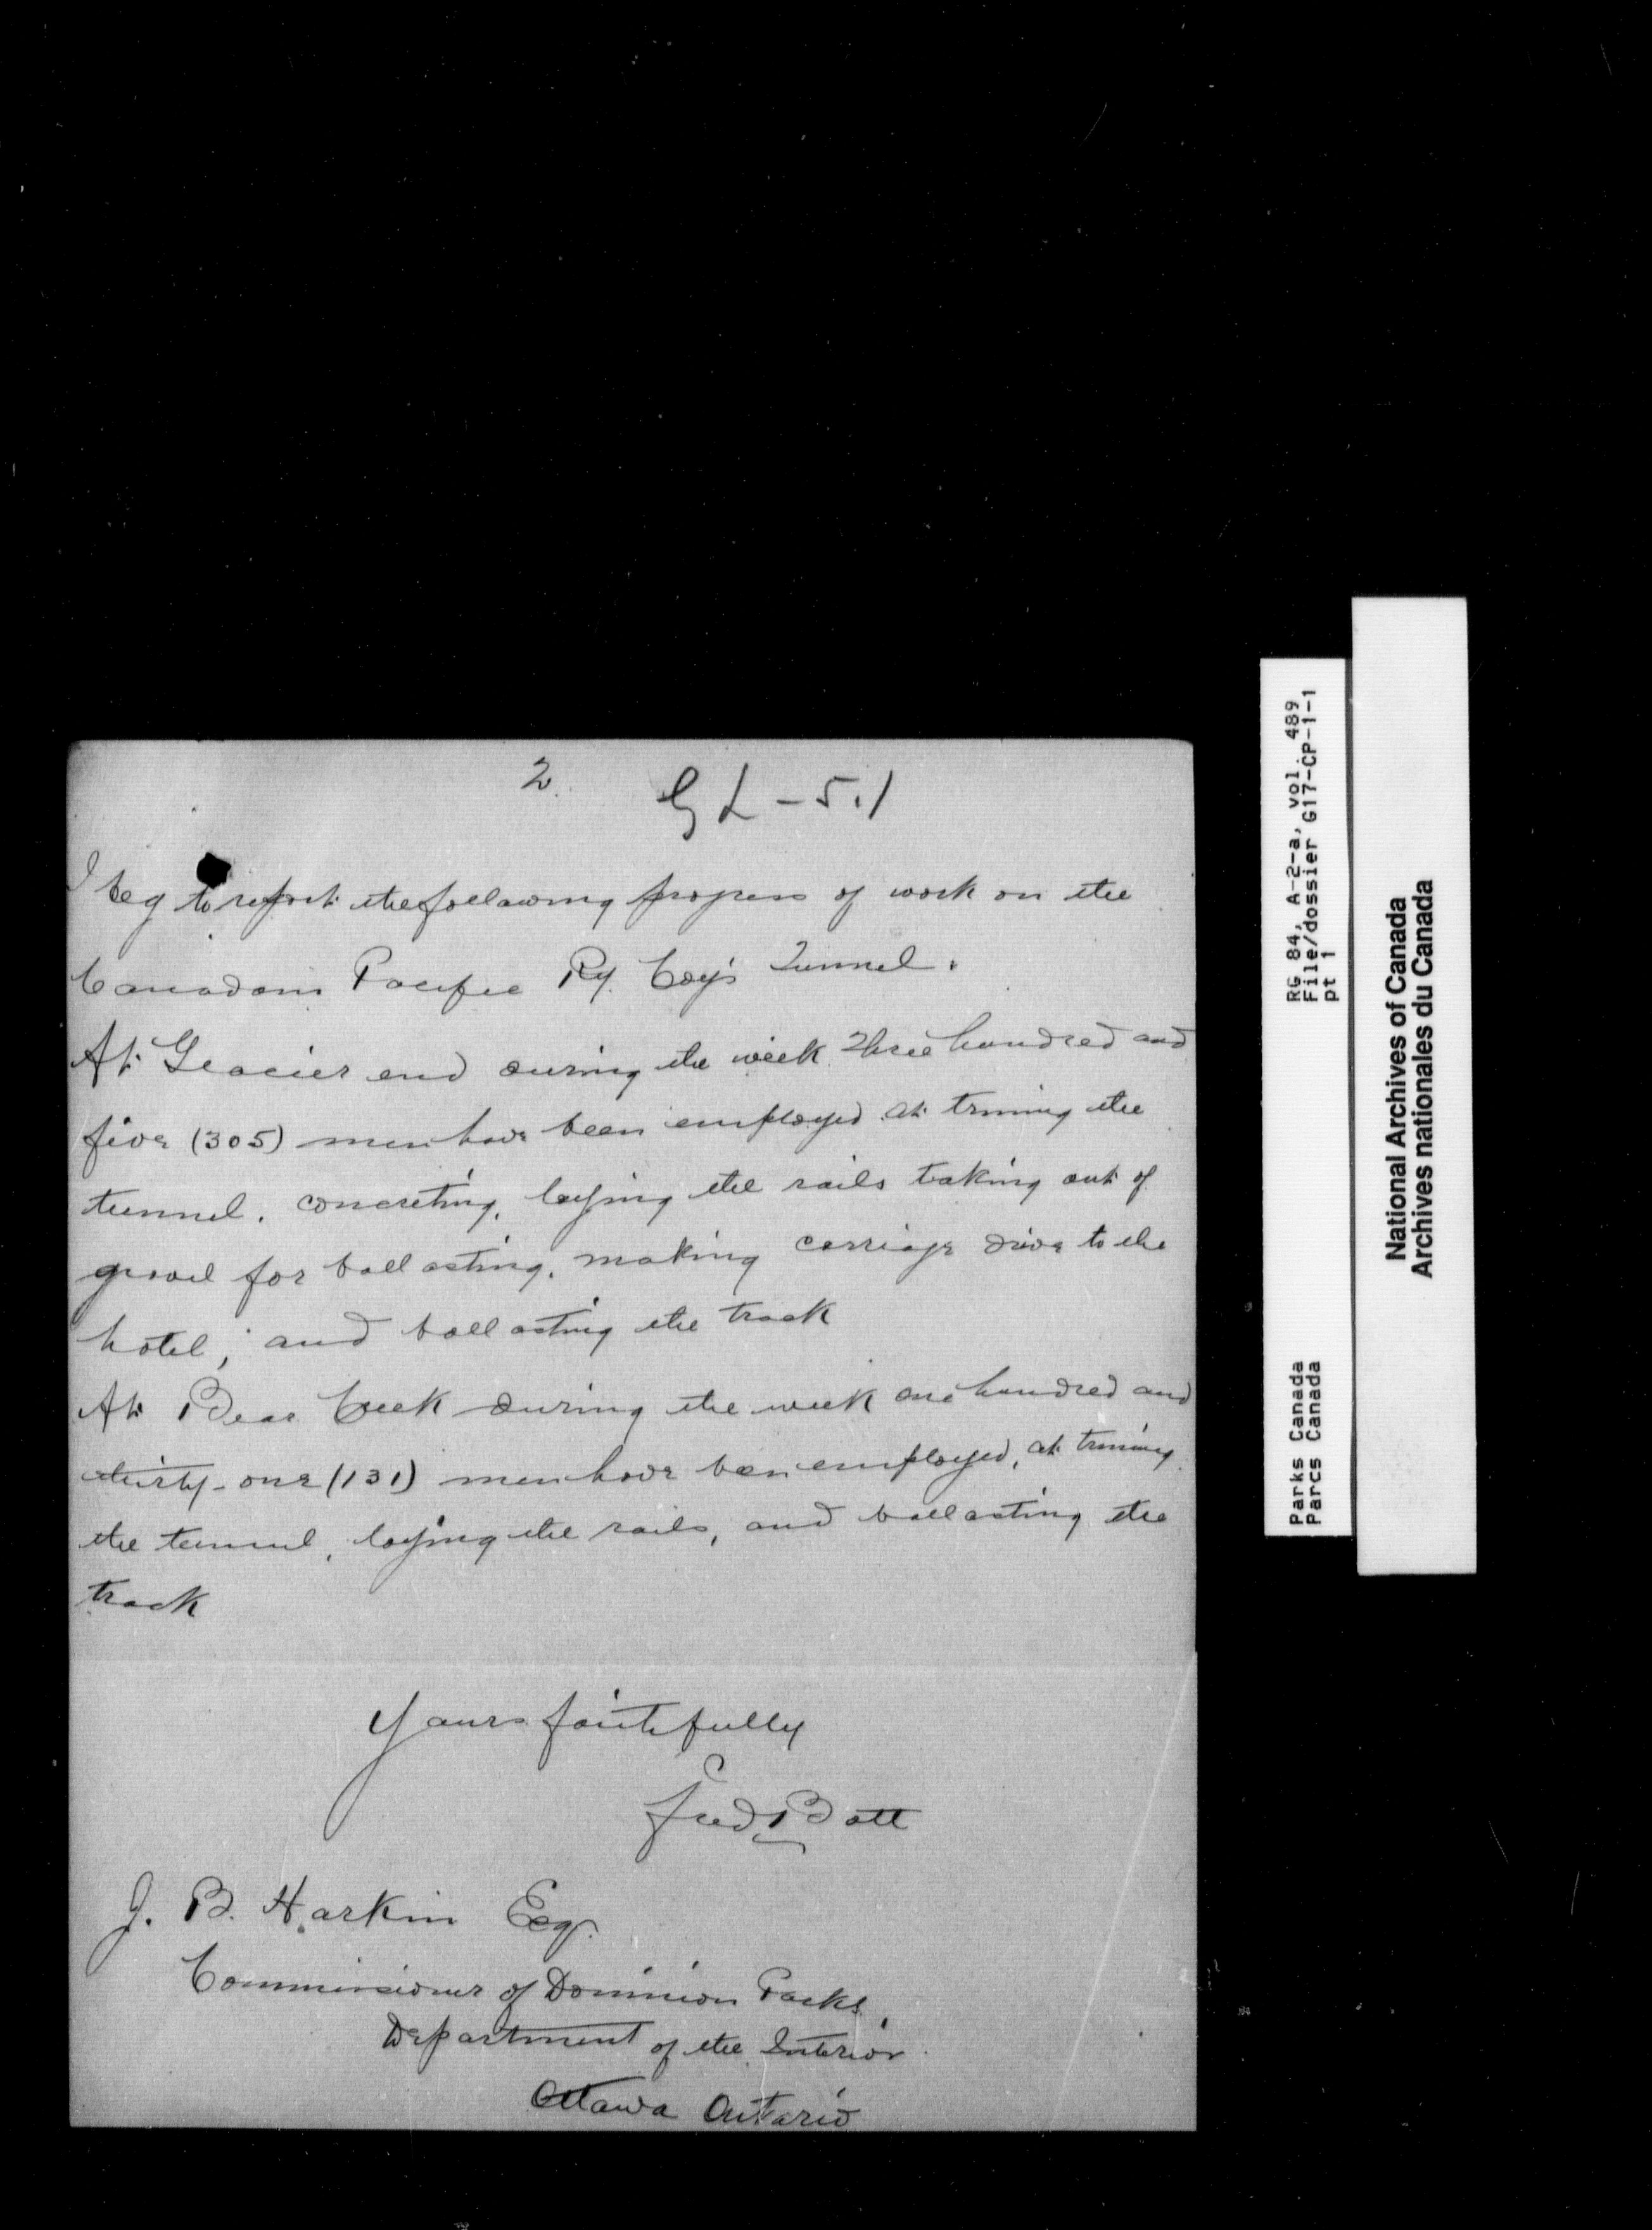 2.
GL-5.1
I beg to report the following progress of work on the
Canadain Pacific Ry. Coy's Tunnel.
At Glacier end during the week Three hundred and
five (305) men have been employed at triming the
tunnel, concreting, laying the rails taking out of
gravel for ballasting, making carriage drive to the
hotel, and ballasting the track
At Bear Creek during the week one hundred and
thirty-one (131) men have been employed, at triming
the tunnel, laying the rails, and ballasting the
track
Yours faithfully
Fred Bott
J. B. Harkin Esq.
Commissioner of Dominion Parks,
Department of the Interior
Ottawa Ontario
RG 84, A-2-a, vol. 489
File/dossier G17-CP-1-1
pt 1
Parks Canada
Parcs Canada
National Archives of Canada
Archives nationales du Canada